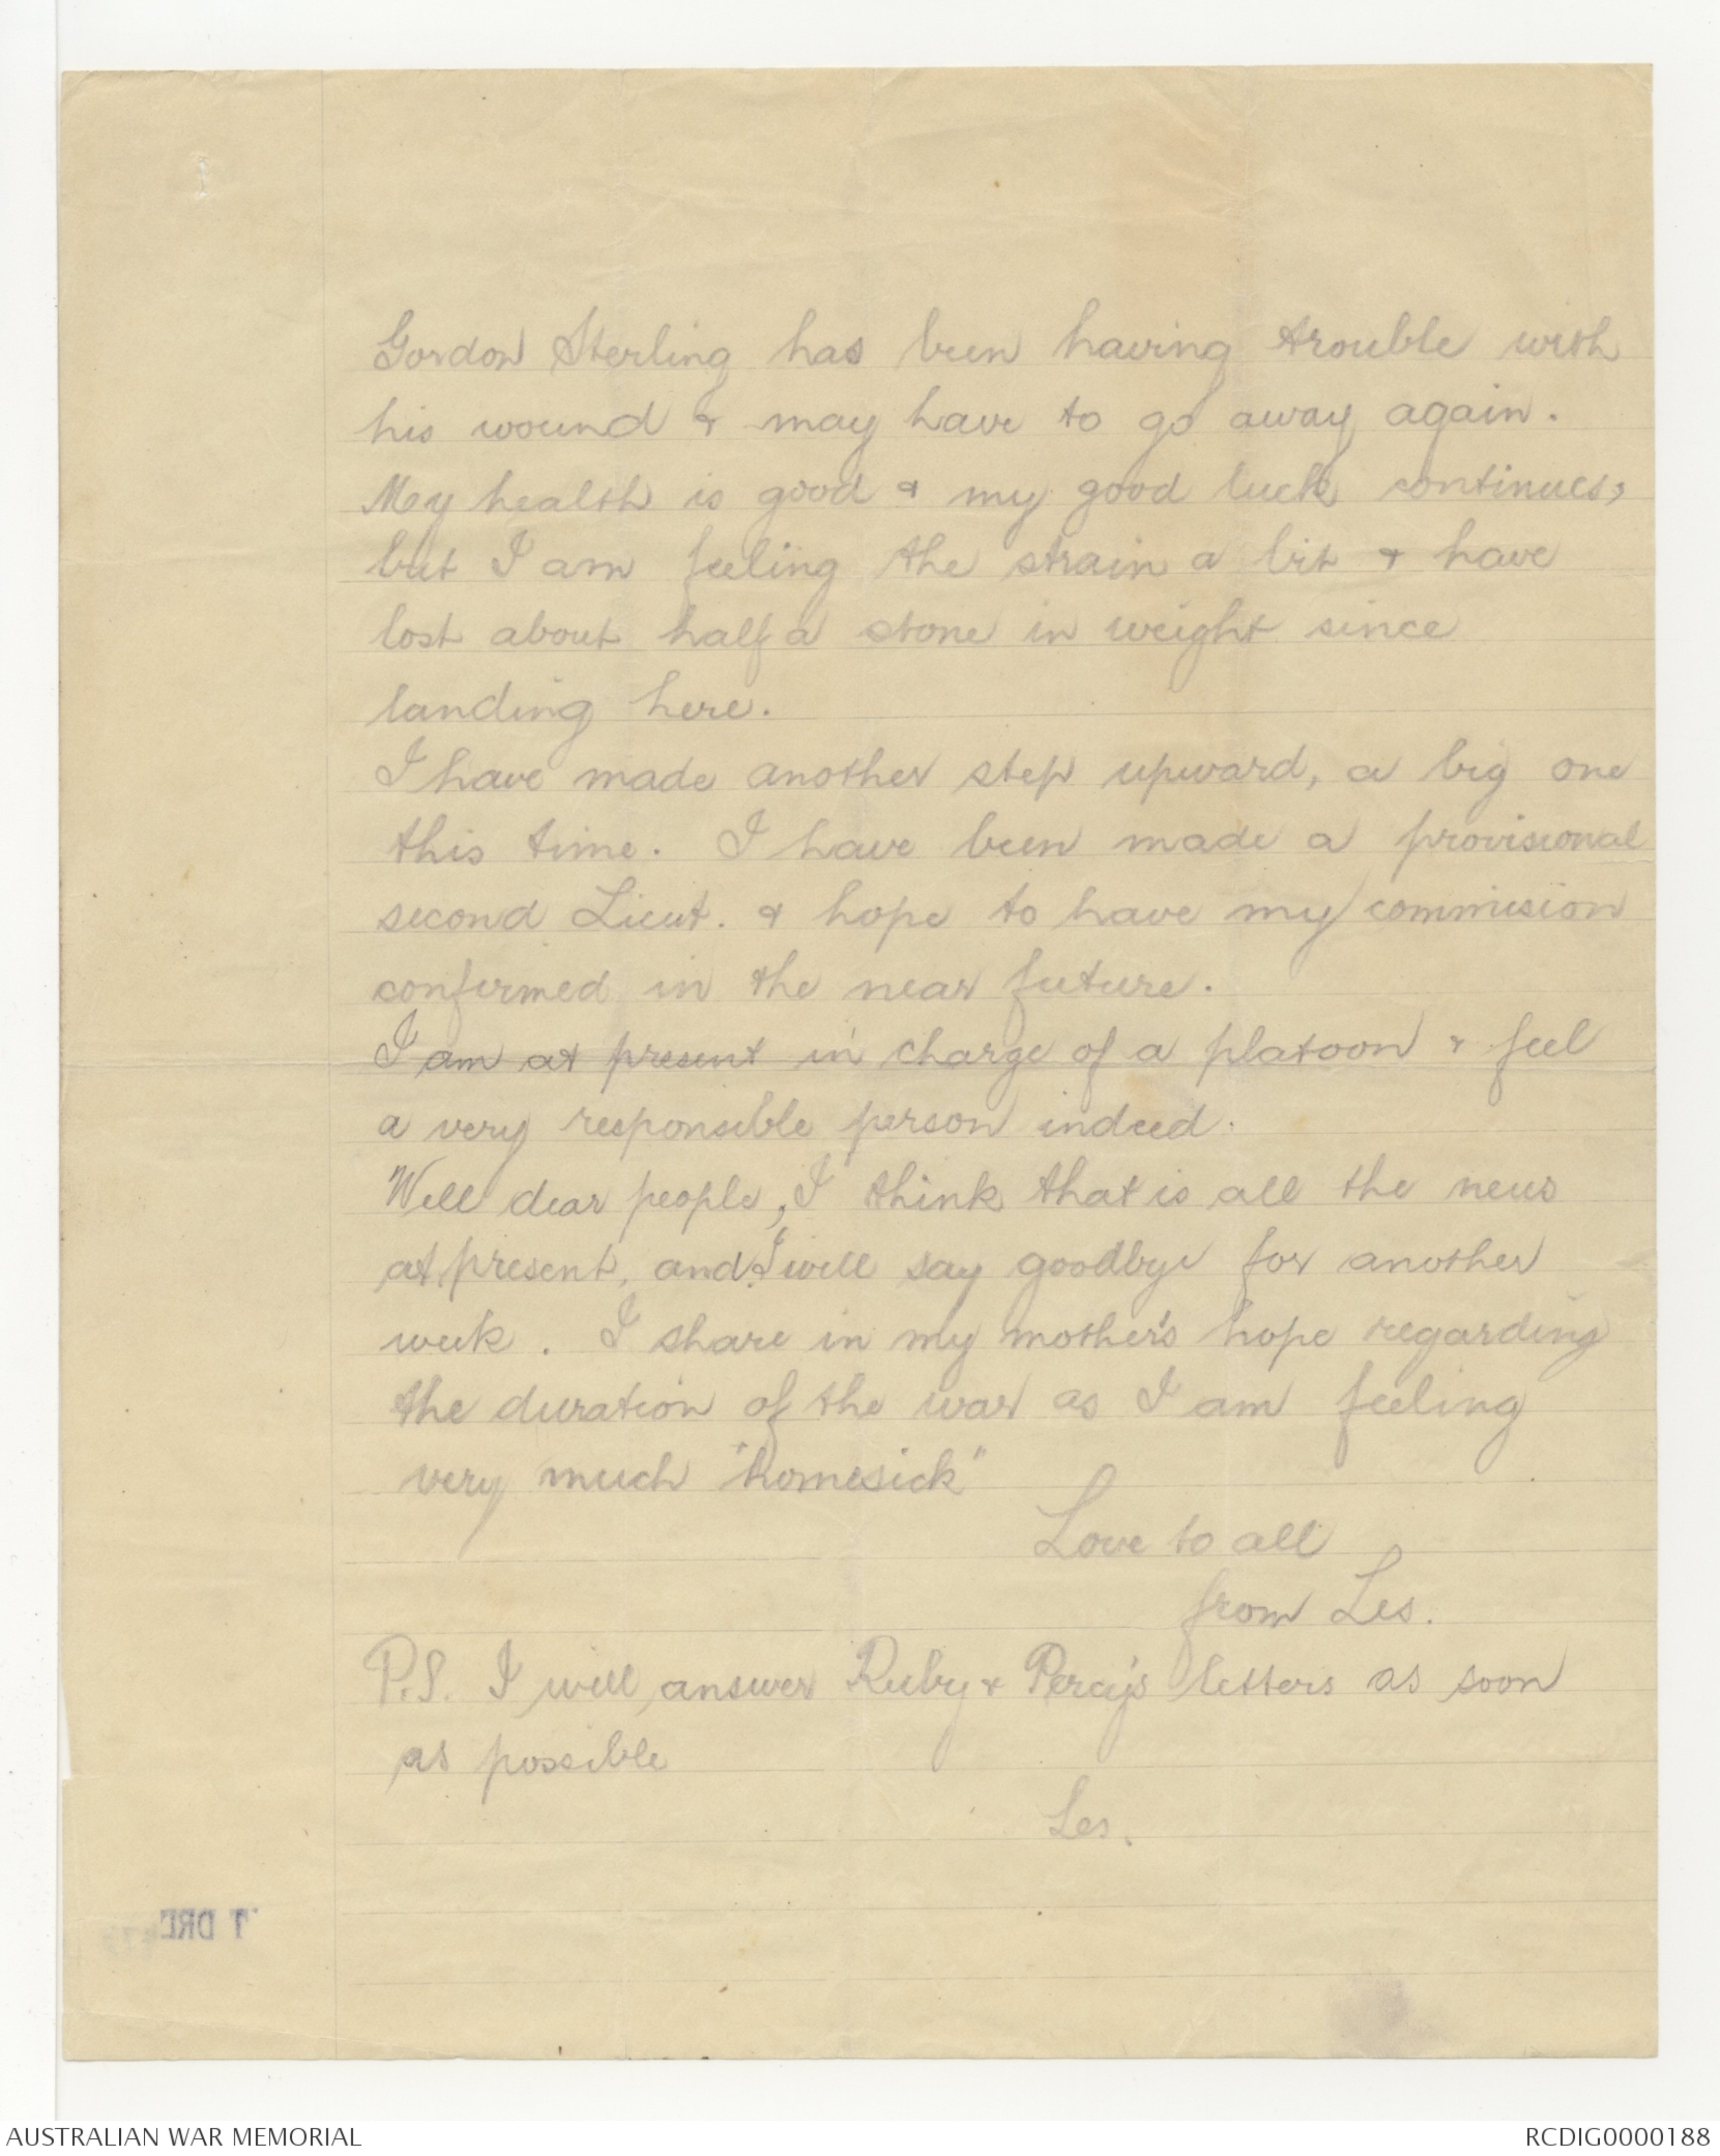 Gordon Sterling has been having trouble with
his wound & may have to go away again.
My health is good & my good luck continues,
but I am feeling the strain a bit & have
lost about half a stone in weight since
landing here.
I have made another step upward, a big one
this time. I have been made a provisional
second Lieut. & hope to have my commision
confirmed in the near future.
I am at present in charge of a platoon & feel
a very responsible person indeed.
Well dear people, I think that is all the news
at present, and I will say goodbye for another
week. I share in my mother's hope regarding
the duration of the war as I am feeling
very much "homesick"
Love to all
from Les.
P.S. I will answer Ruby & Percy's letters as soon
as possible
Les.
AUSTRALIAN WAR MEMORIAL
RCDIG0000188